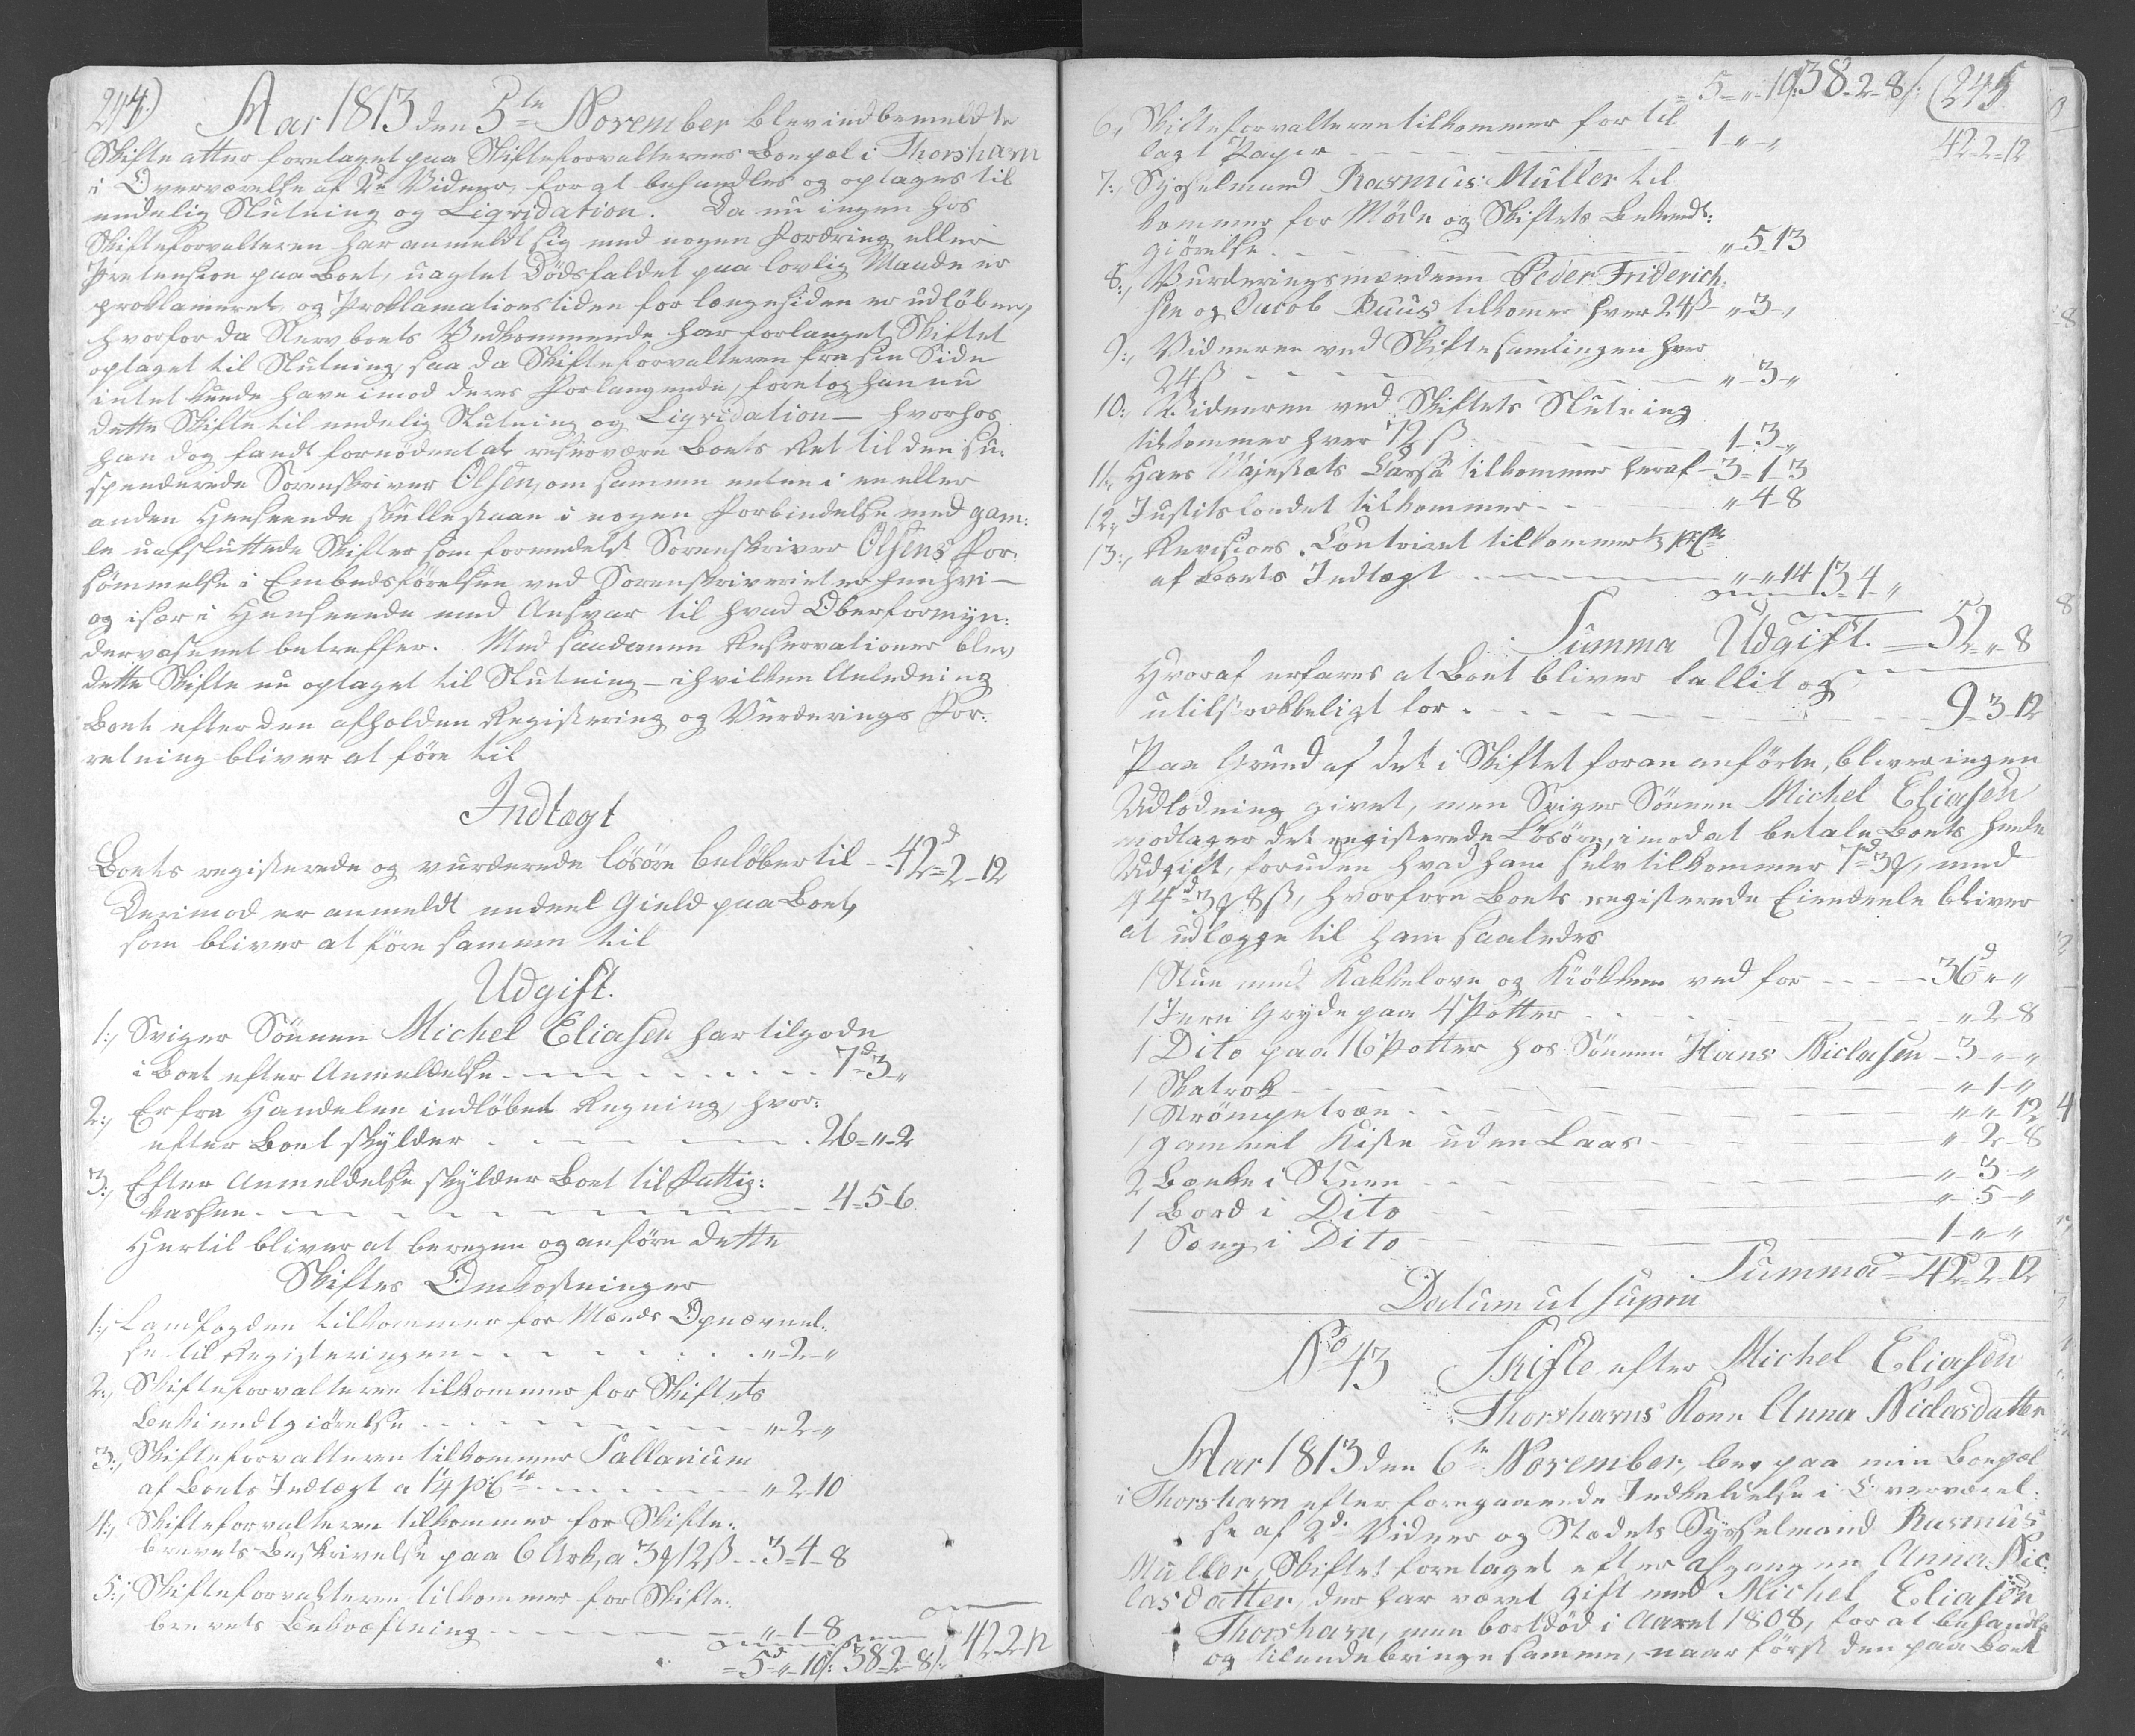 244.)
Aar 1813 den 5te November blev indbemeldte
Skifte atter foretaget paa Skifteforvalterens Boepæl i Thorshavn
i Overværelse af 2de Vidner, for at behandles og optages til
endelig Slutning og Liqvidation. Da nu ingen hos
Skifteforvalteren har anmeldt sig med nogen Fordring eller
Prætension paa Boet, uagtet Dödsfaldet paa lovlig Maade er
proklameret og Proklamationstiden for længe siden er udlöben,
hvorfor da Stervboets Vedkommende har forlanget Skiftet
optaget til Slutning, saa da Skifteforvalteren fra sin Side
intet kunde have imod deres Forlangende, foretog han nu
dette Skifte til endelig Slutning og Liqvidation – hvorhos
han dog fandt fornödent at reservere Boets Ret til den su-
spenderede Sorenskriver Olsen, om samme enten i en eller
anden Henseende skulle staae i nogen Forbindelse med gam-
le uafsluttede Skifter som formedelst Sorenskriver Olsens For-
sömmelse i Embedsförelsen ved Sorenskriveriet er henhvi-
og især i Henseende med Ansvar til hvad Oberformyn-
dervæsenet betreffer. Med saadanne Reservationer blev
dette Skifte nu optaget til Slutning – i hvilken Anledning
Boet efter den afholden Registering og Vurderings For-
retning bliver at före til
Indtægt
Boets registerede og vurderede lösöre belöber til – 42d 2 12
Derimod er anmeldt endeel Gield paa Boet,
som bliver at före samme til
Udgift.
1., Sviger Sönnen Michel Eliasen har tilgode
i Boet efter Anmeldelse 7d 3 "
2., Er fra Handelen indlöbet Regning, hvor-
efter Boet skylder 26 " 2
3., Efter Anmeldelse skylder Boet til Fattig-
kassen 4 5 6
Hertil bliver at beregne og anföre dette
Skiftes Omkostninger
1., Landfogden tilkommer for Mænds Opnævnel-
se til Registeringen " 2 "
2., Skifteforvalteren tilkommer for Skiftets
Bekiendtgiörelse " 2 "
3., Skifteforvalteren tilkommer Sallarium
af Boets Indtægt a 1¼ pCto " 2 10
4., Skifteforvalteren tilkommer for Skifte-
brevets Beskrivelse paa 6 Ark, a 3 12ß 3 4 8
5., Skifteforvalteren tilkommer for Skifte-
brevets Bekræftning " 1 8
= 5d " 10ß 38 2 8ß 42 2 12
= 5 " 10 38 2 8ß (245.
42 2 12
6., Skifteforvalteren tilkommer for til
lagt Papir 1 " "
7., Sysselmand Rasmus Müller til
kommer for Möde og Skiftets Bekiendt-
giörelse " 5 13
8., Vurderingsmændene Peder Friderich-
sen og Jacob Buus tilkomer hver 24ß " 3 "
9., Vidnerne ved Skiftesamlingen hver
24ß " 3 "
10., Vidnerne ved Skiftets Slutning
tilkommer hver 12ß 1 3 "
11., Hans Majestæts Cassa tilkommer heraf 3 1 3
12., Justitsfondet tilkommer " 4 8
13., Revisions Contoiret tilkommer ½ pCto
af Boets Indtægt " " 14 13 4 "
Summa Udgift. 52 " 8
Hvoraf erfares at Boet bliver fallit og
utilstrækkeligt for 9 3 12
Paa Grund af det i Skiftet foran anförte, bliver ingen
Udlodning givet, men Sviger Sönnen Michel Eliasen
modtager det registerede Lösöre, imod at betale Boets hende
Udgift, foruden hvad ham selv tilkommer 7d 3, med
44d 3 8ß, hvorfore Boets registerede Eiendeele bliver
at udlægge til ham saaledes
1 Stue med Kakkelovn og Kiökken ved for 36d " "
1 Jern Gryde paa 4 Potter " 2 8
1 Dito paa 16 Potter hos Sönnen Hans Niclasen 3 " "
1 Skatrok " 1 "
1 Strömpetræe " " 12
1 gammel Kiste uden Laas " 2 8
2 Bænke i Stuen " 3 "
1 Bord i Dito " 5 "
1 Seng i Dito 1 " "
Summa 42d 2 12
Datum ut supra
No 43 Skifte efter Michel Eliasen
Thorshavns Kone Anna Niclasdatter
Aar 1813 den 6te November, blev paa min Boepæl
i Thorshavn efter foregaaende Indkaldelse i Overværel-
se af 2de Vidner og Stedets Sysselmand Rasmus
Müller, Skiftet foretaget efter afgangen Anna Nic-
lasdatter, der har været gift med Michel Eliasen
Thorshavn, men bortdöd i Aaret 1808, for at behandle
og tilendebringe samme, naar först den paa Boet